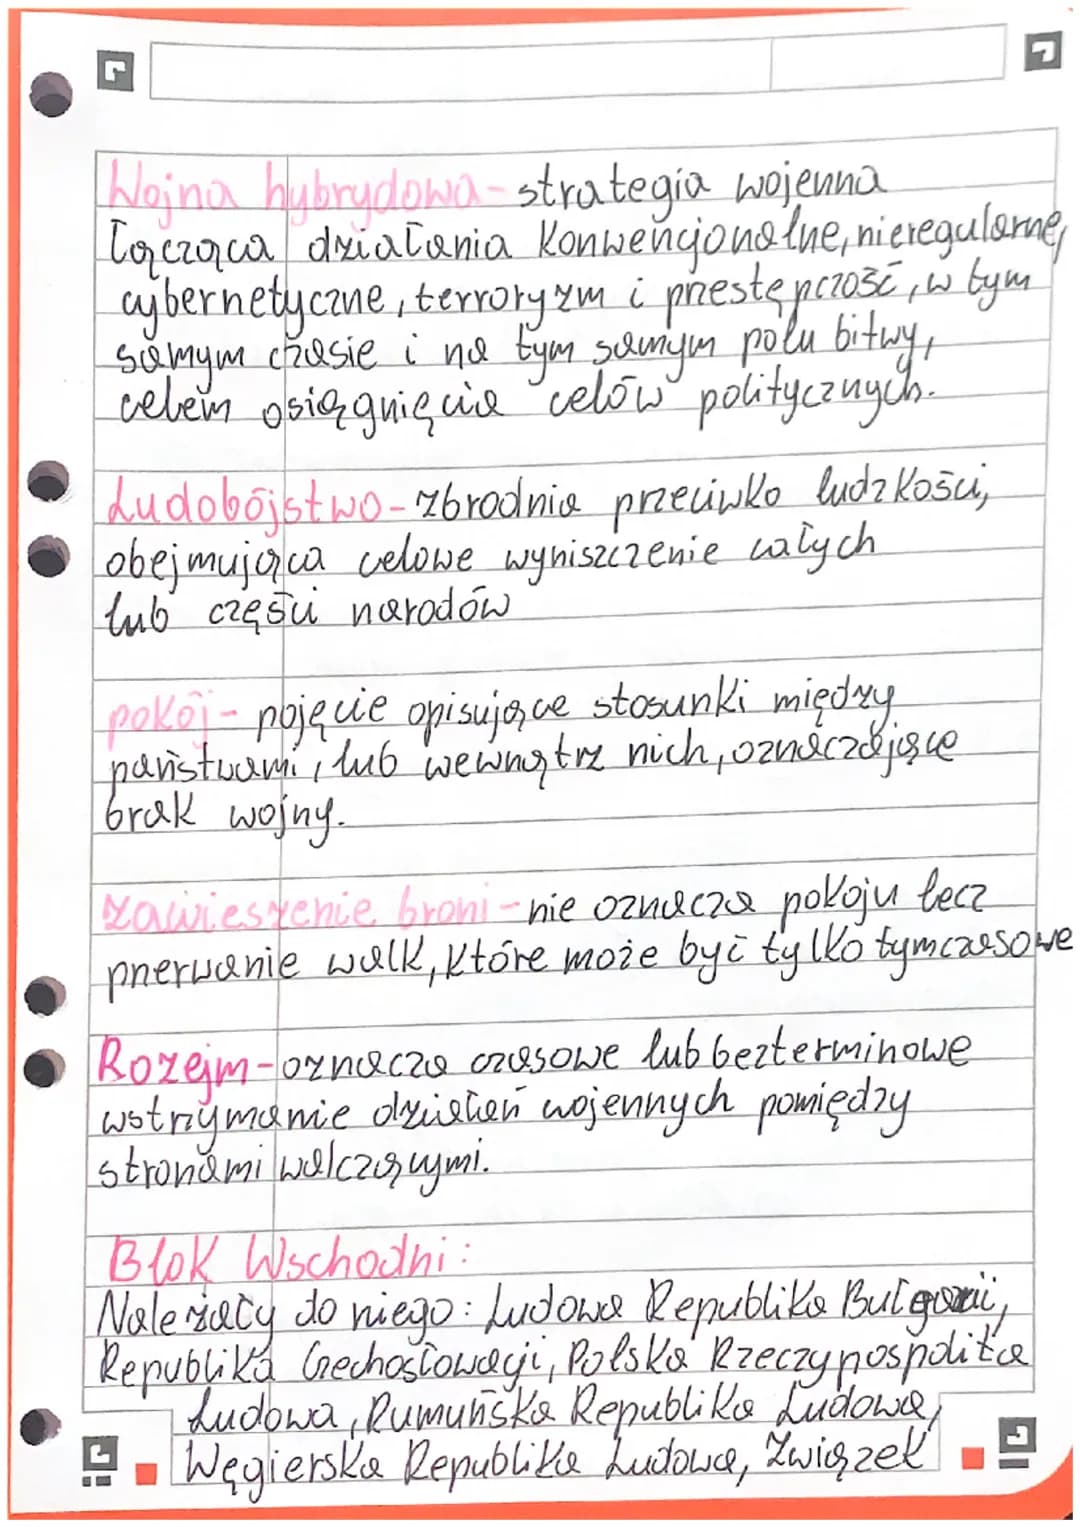 Wojna hybrydowa - strategia wojenna
łącząca działania konwencjonalne, nieregularne,
cybernetyczne, terroryzm i prestępczość, w tym
samym czasie i na tym samym polu bitwy,
celem osiągnięcia celów politycznych.
Ludobójstwo - zbrodnia przeciwko ludzkości,
obejmująca celowe wyniszczenie całych
lub części narodów
pokój - pojęcie opisujące stosunki między
państwami, lub wewnątrz nich, oznaczające
brak wojny.
zawieszenie broni - nie oznacza pokoju lecz
pnerwanie walk, które może być tylko tymczasowe
Rozejm - oznacza czasowe lub bezterminowe
wstrzymanie działań wojennych pomiędzy
stronami walczącymi.
Blok Wschodni:
Należały do niego: Ludowa Republika Bułgarii,
Republika Czechosłowacji, Polska Rzeczypospolita
Ludowa, Rumuńska Republika Ludowa,
Węgierska Republika Ludowa, Związek